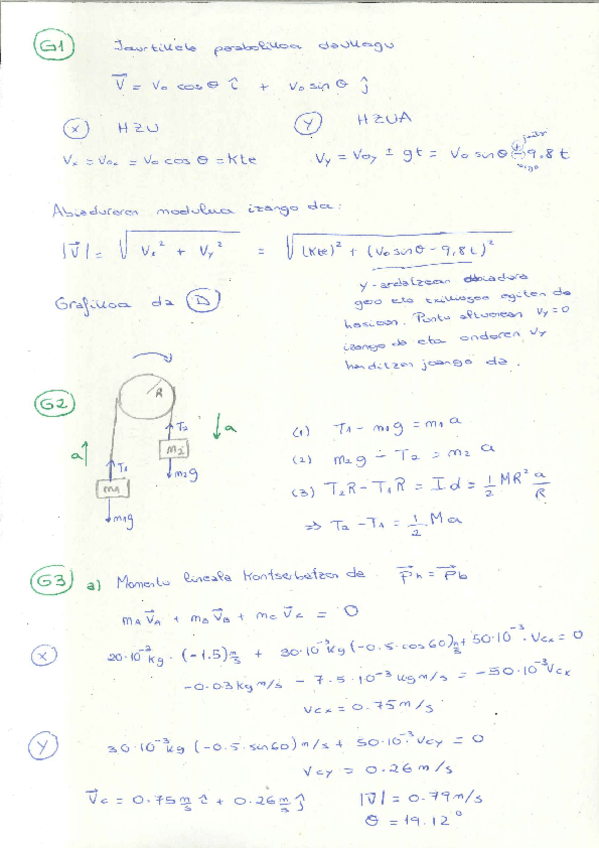 G1 Jaurtiketa parabolikoa daukagu
V⃗ = v₀ cos θ î + v₀ sin θ ĵ
(x) HZU
(y) HZUA
Vₓ = V₀ₓ = V₀ cos θ = Kte
Vy = V₀y ± gt = V₀ sin θ 9.8 t
Abiaduraren modulua izango da:
|V⃗| = √(Vₓ² + Vy²) = √((Kte)² + (V₀ sin θ - 9,8 t)²)
Grafikoa da (D)
y-ardatzean abiadura
gero eta txikiagoa egiten da
hasieran. Puntu altuenean Vy = 0
izango da eta ondoren Vy
handitzen joango da.
G2
R
T₂
a
m₂
a
T₁
m₂g
m₁
m₁g
(1) T₁ - m₁g = m₁a
(2) m₂g - T₂ = m₂ a
(3) T₂R - T₁R = I α = 1/2 MR² a/R
⇒ T₂ - T₁ = 1/2 Ma
G3 a) Momentu lineala kontserbatzen da P⃗h = P⃗b
mA V⃗A + mB V⃗B + mC V⃗C = 0
(x) 20·10⁻³ kg · (-1.5) m/s + 30·10⁻³ kg (-0.5·cos60) m/s + 50·10⁻³·Vcx = 0
-0.03 kg m/s - 7.5·10⁻³ kg m/s = -50·10⁻³ Vcx
Vcx = 0.75 m/s
(y) 30·10⁻³ kg (-0.5·sin60) m/s + 50·10⁻³ Vcy = 0
Vcy = 0.26 m/s
V⃗c = 0.75 m/s î + 0.26 m/s ĵ
|V⃗| = 0.79 m/s
θ = 19.12°